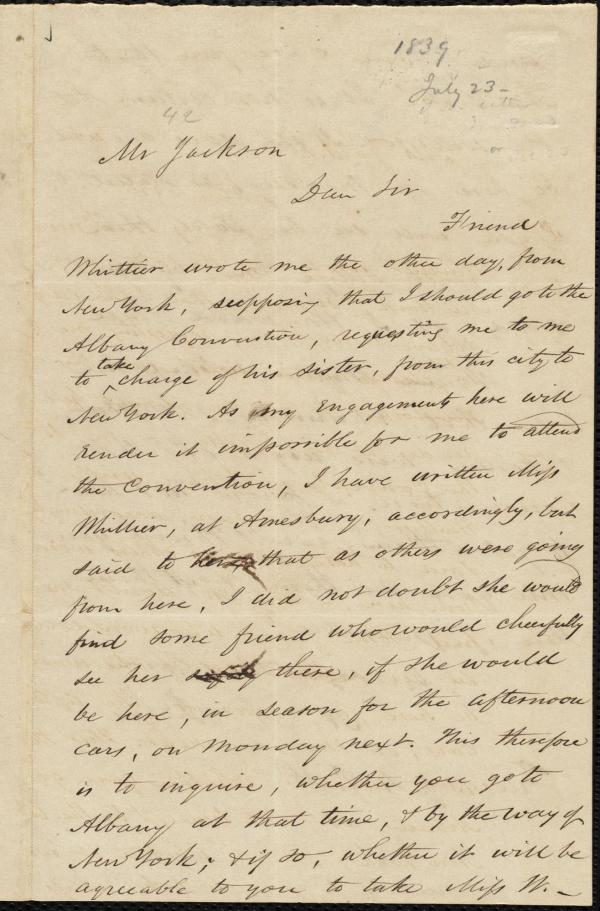 1839
July 23-
42
Mr Jackson
Dear Sir
Friend
Whittier wrote me the other day, from
New York, supposing that I should go to the
Albany Convention, requesting me to me
to take charge of his sister, from this city to
New York. As my Engagements here will
render it impossible for me to attend
the Convention, I have written Miss
Whittier, at Amesbury, accordingly, but
said to her, that as others were going
from here, I did not doubt she would
find some friend who would cheerfully
see her safely there, if she would
be here, in season for the afternoon
cars, on Monday next. This therefore
is to inquire, whether you go to
Albany at that time, & by the way of
New York; & if so, whether it will be
agreeable to you to take Miss W.-